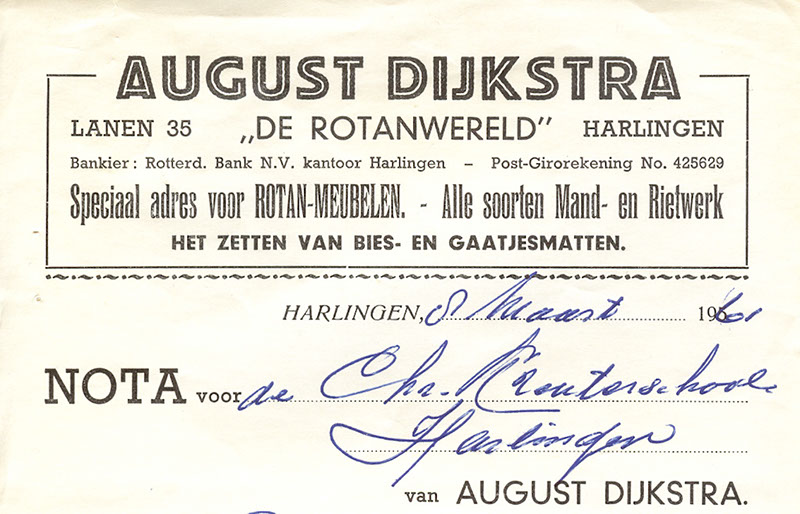 AUGUST DIJKSTRA
LANEN 35 „DE ROTANWERELD” HARLINGEN
Bankier: Rotterd. Bank N.V. kantoor Harlingen – Post-Girorekening No. 425629
Speciaal adres voor ROTAN-MEUBELEN. - Alle soorten Mand- en Rietwerk
HET ZETTEN VAN BIES- EN GAATJESMATTEN.
HARLINGEN, 8 Maart 1961
NOTA voor de Chr. Kleuterschool
Harlingen
van AUGUST DIJKSTRA.